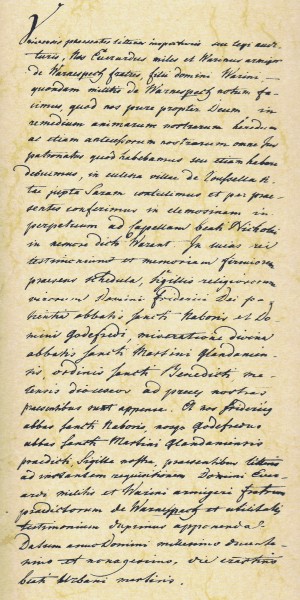 Universis praesentes litteras inspecturis seu legi audi-
turis, Nos Everardus miles et Warinus armiger
de Warnesperg fratres, filii domini Warini,—
quondam militis de Warnesperg notum fa-
cimus, quod nos pure propter Deum in
remedium animarum nostrarum heredum
ac etiam antecessorum nostrarum omne Jus
patronatus quod habebamus seu etiam habere
debuimus, in ecclesia villae de
tae juxta Saram contulimus et per prae-
sentes conferimus in elemosinam in
perpetuum ad Capellam beati Nicholai
in nemore dicti Warent. In cuius rei
testimonium et memoriam firmiorem
praesens schedula, Sigillis religiosorum
virorum Domini Friderici Dei pa-
tientia abbatis sancti Naboris, et Do-
mini Godefredi, miseratione divina
abbatis sancti Martini Glandarien-
sis ordinis sancti Benedicti me-
tensis dioceseos ad preces nostras
praesentibus sunt appensa. Et nos fridericus
abbas sancti Naboris, nosque Godefredus
abbas sancti Martini Glandariensis
praedicti Sigilla nostra, praesentibus litteris
ad instantem requisitionem Domini Ever-
ardi militis et Warini armigeri fratrum
praedictorum de Warnesperg et
testimonium duximus apponenda.
Datum anno Domini millesimo ducente-
simo et nonagesimo, die crastino
beati Urbani martiris.